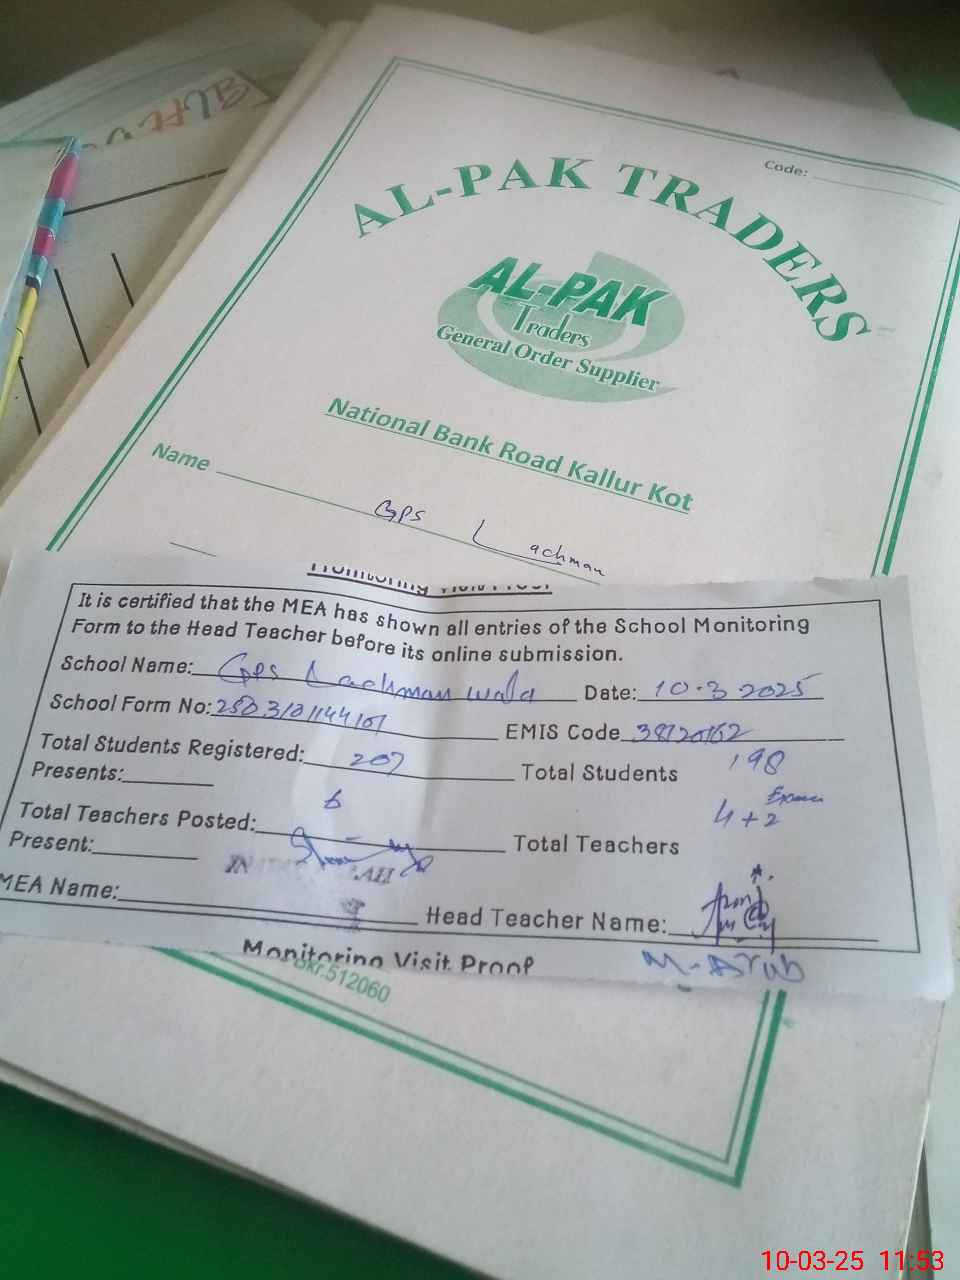 Code:
AL-PAK TRADERS
AL-PAK
Traders
General Order Supplier
National Bank Road Kallur Kot
Name GPS Lachman
Monitoring Visit Proof
It is certified that the MEA has shown all entries of the School Monitoring
Form to the Head Teacher before its online submission.
School Name: GPS Lachman wala Date: 10.3.2025
School Form No: EMIS Code 38120162
Total Students Registered: 207 Total Students 198
Presents:
Total Teachers Posted: 6 Total Teachers 4+2
Present:
MEA Name: Head Teacher Name:
M-Arub
Monitoring Visit Proof
Bkr.512060
10-03-25 11:53